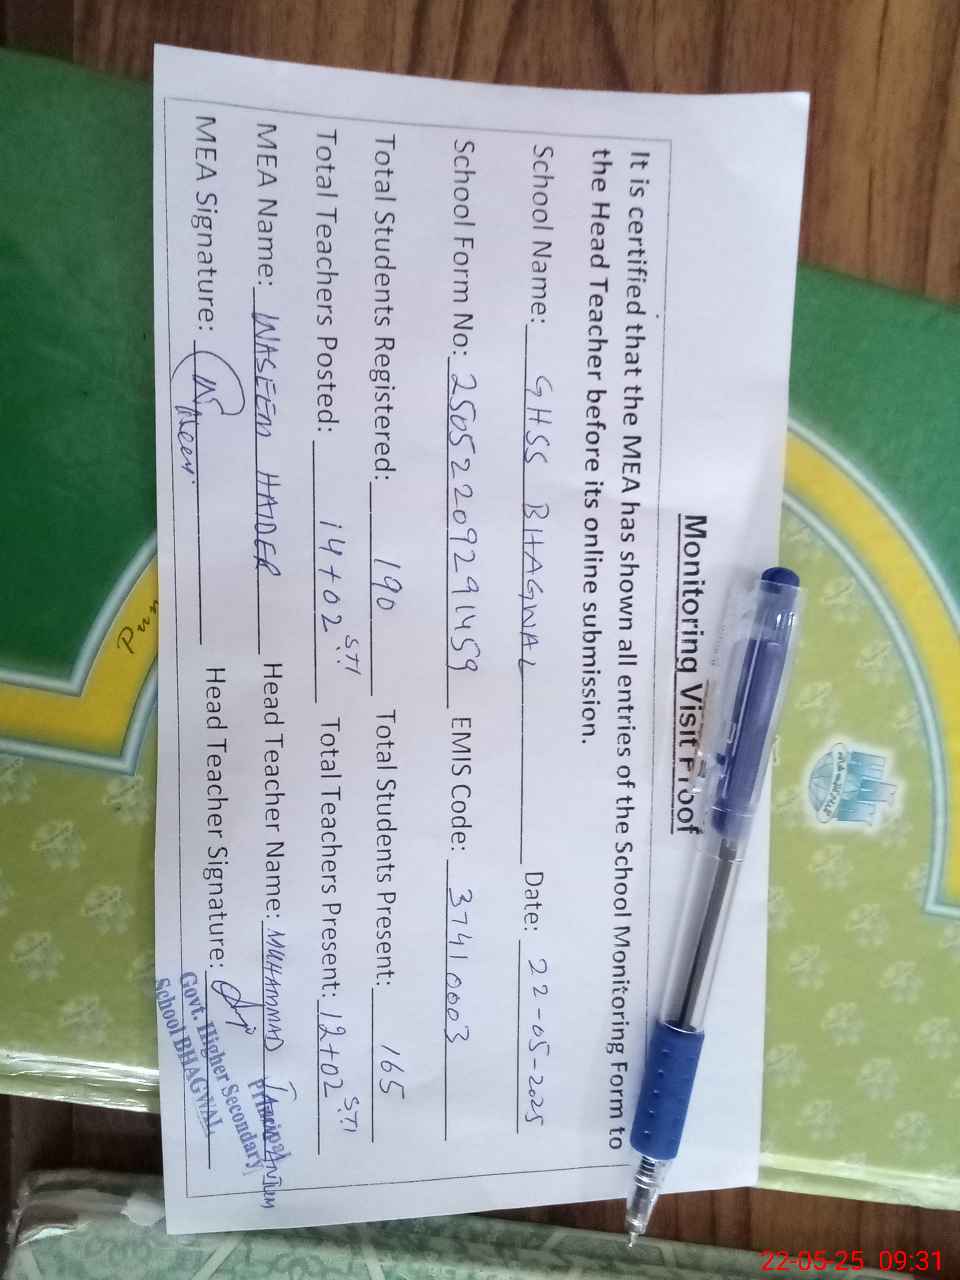 Monitoring Visit Proof
It is certified that the MEA has shown all entries of the School Monitoring Form to
the Head Teacher before its online submission.
School Name: GHSS BHAGWAL Date: 22-05-2025
School Form No: 25052209291459 EMIS Code: 37410003
Total Students Registered: 190 Total Students Present: 165
Total Teachers Posted: 14+02 STI Total Teachers Present: 12+02 STI
MEA Name: WASEEM HAIDER Head Teacher Name: MUHAMMAD
MEA Signature: Head Teacher Signature:
Principal
Govt. Higher Secondary
School BHAGWAL
22-05-25 09:31